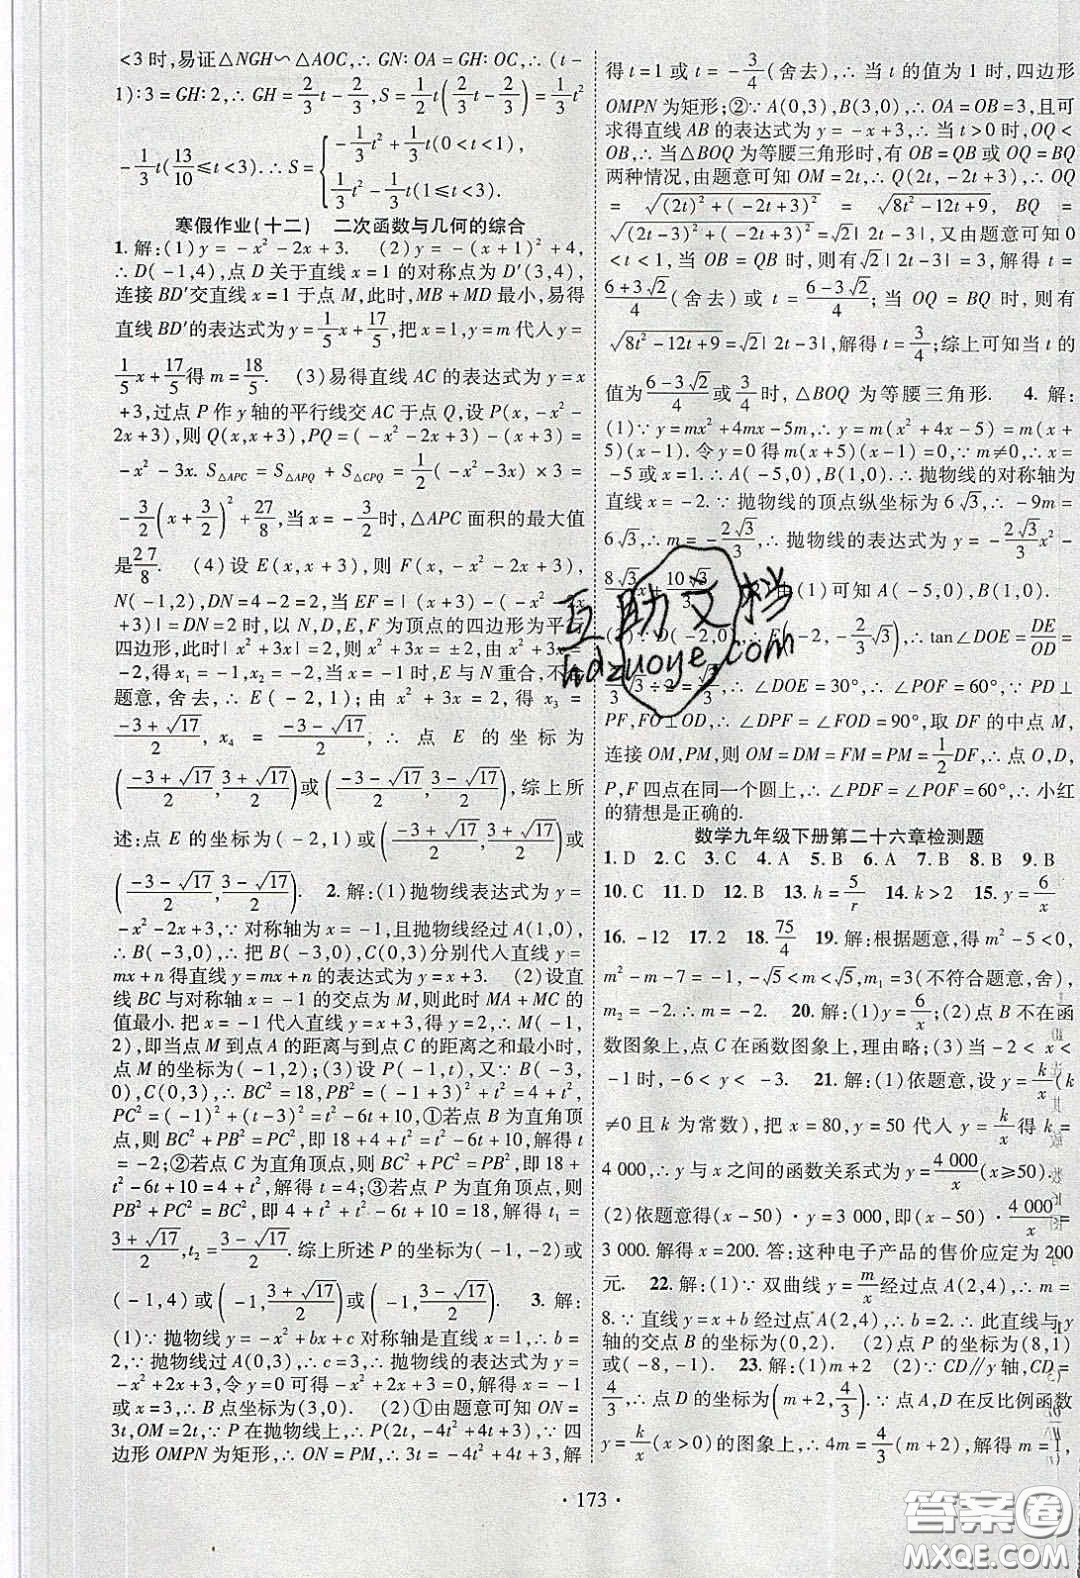 <3时,易证△NGH∽△AOC,∴GN:OA=GH:OC,∴(t-
1):3=GH:2,∴GH=2/3t-2/3,S=1/2t(2/3t-2/3)=1/3t²
-1/3t(13/10≤t<3).∴S={-1/3t²+1/3t(0<t<1),
1/3t²-1/3t(1≤t<3).
寒假作业(十二) 二次函数与几何的综合
1.解:(1)y=-x²-2x+3. (2)y=-(x+1)²+4,
∴D(-1,4),点D关于直线x=1的对称点为D′(3,4),
连接BD′交直线x=1于点M,此时,MB+MD最小,易得
直线BD′的表达式为y=1/5x+17/5,把x=1,y=m代入y=
1/5x+17/5得m=18/5. (3)易得直线AC的表达式为y=x
+3,过点P作y轴的平行线交AC于点Q,设P(x,-x²-
2x+3),则Q(x,x+3),PQ=(-x²-2x+3)-(x+3)=
-x²-3x.S△APC=S△APQ+S△CPQ=1/2(-x²-3x)×3=
-3/2(x+3/2)²+27/8,当x=-3/2时,△APC面积的最大值
是27/8. (4)设E(x,x+3),则F(x,-x²-2x+3),
N(-1,2),DN=4-2=2,当EF=|(x+3)-(-x²-2x
+3)|=DN=2时,以N,D,E,F为顶点的四边形为平行
四边形,此时|x²+3x|=2,x²+3x=±2,由x²+3x=
-2,得x₁=-2,x₂=-1,此时E与N重合,不合
题意,舍去,∴E(-2,1);由x²+3x=2,得x₃=
(-3+√17)/2,x₄=(-3-√17)/2,∴点E的坐标为
((-3+√17)/2,(3+√17)/2)或((-3-√17)/2,(3-√17)/2),综上所
述:点E的坐标为(-2,1)或((-3+√17)/2,(3+√17)/2)或
((-3-√17)/2,(3-√17)/2). 2.解:(1)抛物线表达式为y=
-x²-2x+3,∵对称轴为x=-1,且抛物线经过A(1,0),
∴B(-3,0),∴把B(-3,0),C(0,3)分别代入直线y=
mx+n得直线y=mx+n的表达式为y=x+3. (2)设直
线BC与对称轴x=-1的交点为M,则此时MA+MC的
值最小.把x=-1代入直线y=x+3,得y=2,∴M(-1,
2),即当点M到点A的距离与到点C的距离之和最小时,
点M的坐标为(-1,2);(3)设P(-1,t),又B(-3,
0),C(0,3),∴BC²=18,PB²=(-1+3)²+t²=4+t²,
PC²=(-1)²+(t-3)²=t²-6t+10,①若点B为直角顶
点,则BC²+PB²=PC²,即18+4+t²=t²-6t+10,解得t
=-2;②若点C为直角顶点,则BC²+PC²=PB²,即18+
t²-6t+10=4+t²,解得t=4;③若点P为直角顶点,则
PB²+PC²=BC²,即4+t²+t²-6t+10=18,解得t₁=
(3+√17)/2,t₂=(3-√17)/2.综上所述P的坐标为(-1,-2)或
(-1,4)或(-1,(3+√17)/2)或(-1,(3-√17)/2). 3.解:
(1)∵抛物线y=-x²+bx+c对称轴是直线x=1,∴b=
2,∵抛物线过A(0,3),∴c=3,∴抛物线的表达式为y=
-x²+2x+3,令y=0可得-x²+2x+3=0,解得x=-1
或x=3,∴B点坐标为(3,0). (2)①由题意可知ON=
3t,OM=2t,∵P在抛物线上,∴P(2t,-4t²+4t+3),∵四
边形OMPN为矩形,∴ON=PM,∴3t=-4t²+4t+3,解
得t=1或t=-3/4(舍去),∴当t的值为1时,四边形
OMPN为矩形;②∵A(0,3),B(3,0),∴OA=OB=3,且可
求得直线AB的表达式为y=-x+3,∴当t>0时,OQ<
OB,∴当△BOQ为等腰三角形时,有OB=QB或OQ=BQ
两种情况,由题意可知OM=2t,∴Q(2t,-2t+3),∴OQ
=√((2t)²+(-2t+3)²)=√(8t²-12t+9),BQ=
√((2t-3)²+(-2t+3)²)=√2|2t-3|,又由题意可知0
<t<1,当OB=QB时,则有√2|2t-3|=3,解得t=
(6+3√2)/4(舍去)或t=(6-3√2)/4;当OQ=BQ时,则有
√(8t²-12t+9)=√2|2t-3|,解得t=3/4;综上可知当t的
值为(6-3√2)/4或3/4时,△BOQ为等腰三角形. 4.解:
(1)∵y=mx²+4mx-5m,∴y=m(x²+4x-5)=m(x+
5)(x-1).令y=0得m(x+5)(x-1)=0,∵m≠0,∴x=
-5或x=1.∴A(-5,0),B(1,0).∴抛物线的对称轴为
直线x=-2.∵抛物线的顶点纵坐标为6√3,∴-9m=
6√3,∴m=-2√3/3,∴抛物线的表达式为y=-2√3/3x²-
8√3/3x+10√3/3. (2)由(1)可知A(-5,0),B(1,0).
∴D(-2,0),∴E(-2,-2/3√3),∴tan∠DOE=DE/OD=
2/3√3÷2=√3/3,∴∠DOE=30°,∴∠POF=60°,∵PD⊥
PF,FO⊥OD,∴∠DPF=∠FOD=90°,取DF的中点M,
连接OM,PM,则OM=DM=FM=PM=1/2DF,∴点O,D,
P,F四点在同一个圆上,∴∠PDF=∠POF=60°,∴小红
的猜想是正确的.
数学九年级下册第二十六章检测题
1.D 2.C 3.C 4.A 5.B 6.A 7.B 8.B 9.B
10.C 11.D 12.B 13.h=5/r 14.k>2 15.y=6/x
16.-12 17.2 18.75/4 19.解:根据题意,得m²-5<0,
m²-m-7=-1,-√5<m<√5,m₁=3(不符合题意,舍),
m₂=-2,∴m=-2. 20.解:(1)y=6/x;(2)点B不在函
数图象上,点C在函数图象上,理由略;(3)当-2<x<
-1时,-6<y<-3. 21.解:(1)依题意,设y=k/x(k
≠0且k为常数),把x=80,y=50代入y=k/x得k=
4 000,∴y与x之间的函数关系式为y=4 000/x(x≥50).
(2)依题意得(x-50)·y=3 000,即(x-50)·4 000/x=
3 000.解得x=200.答:这种电子产品的售价应定为200
元. 22.解:(1)∵双曲线y=m/x经过点A(2,4),∴m=
8.∵直线y=x+b经过点A(2,4),∴b=2.∴此直线与y
轴的交点B的坐标为(0,2). (2)点P的坐标为(8,1)
或(-8,-1). 23.解:(1)m+2 (2)∵CD∥y轴,CD=
4/3,∴点D的坐标为(m+2,4/3),∵点A,D在反比例函数
y=k/x(x>0)的图象上,∴4m=4/3(m+2),解得m=1,
·173·
互助文档
hdzuoye.com
答案圈
MXQE.COM